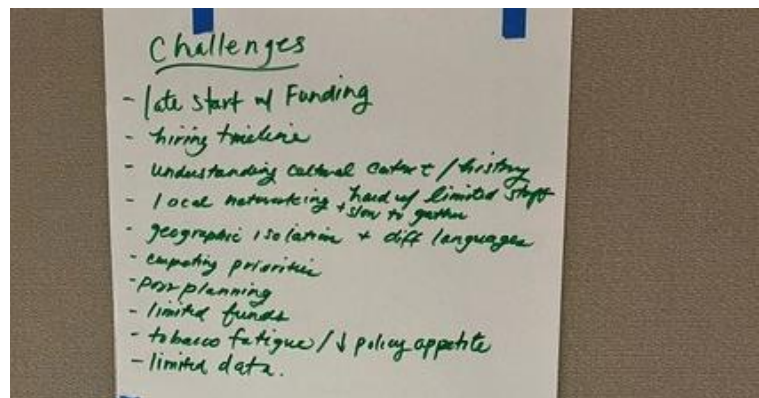 Challenges
- late start w/ Funding
- hiring timeline
- understanding cultural context / history
- local networking hard w/ limited staff
+ slow to gather
- geographic isolation + diff languages
- competing priorities
- poor planning
- limited funds
- tobacco fatigue / ↓ policy appetite
- limited data.